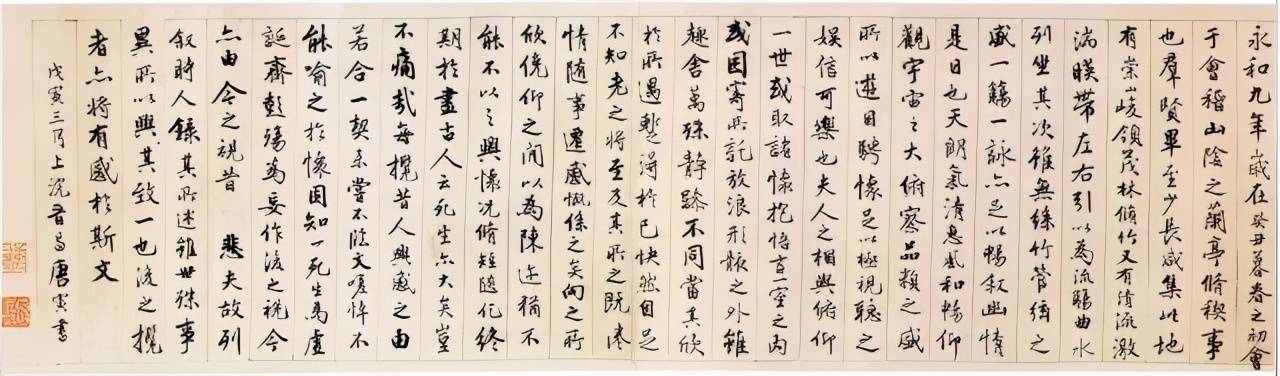 永和九年歲在癸丑暮春之初會
于會稽山陰之蘭亭脩稧事
也羣賢畢至少長咸集此地
有崇山峻領茂林脩竹又有清流激
湍暎帶左右引以為流觴曲水
列坐其次雖無絲竹管絃之
盛一觴一詠亦足以暢叙幽情
是日也天朗氣清惠風和暢仰
觀宇宙之大俯察品類之盛
所以遊目騁懷足以極視聽之
娛信可樂也夫人之相與俯仰
一世或取諸懷抱悟言一室之内
或因寄所託放浪形骸之外雖
趣舍萬殊靜躁不同當其欣
於所遇蹔得於己快然自足
不知老之將至及其所之既惓
情隨事遷感慨係之矣向之所
欣俛仰之閒以為陳迹猶不
能不以之興懷況脩短隨化終
期於盡古人云死生亦大矣豈
不痛哉每攬昔人興感之由
若合一契未嘗不臨文嗟悼不
能喻之於懷固知一死生為虛
誕齊彭殤為妄作後之視今
亦由今之視昔 悲夫故列
叙時人錄其所述雖世殊事
異所以興其致一也後之攬
者亦將有感於斯文
戊寅三月上浣晉昌唐寅書